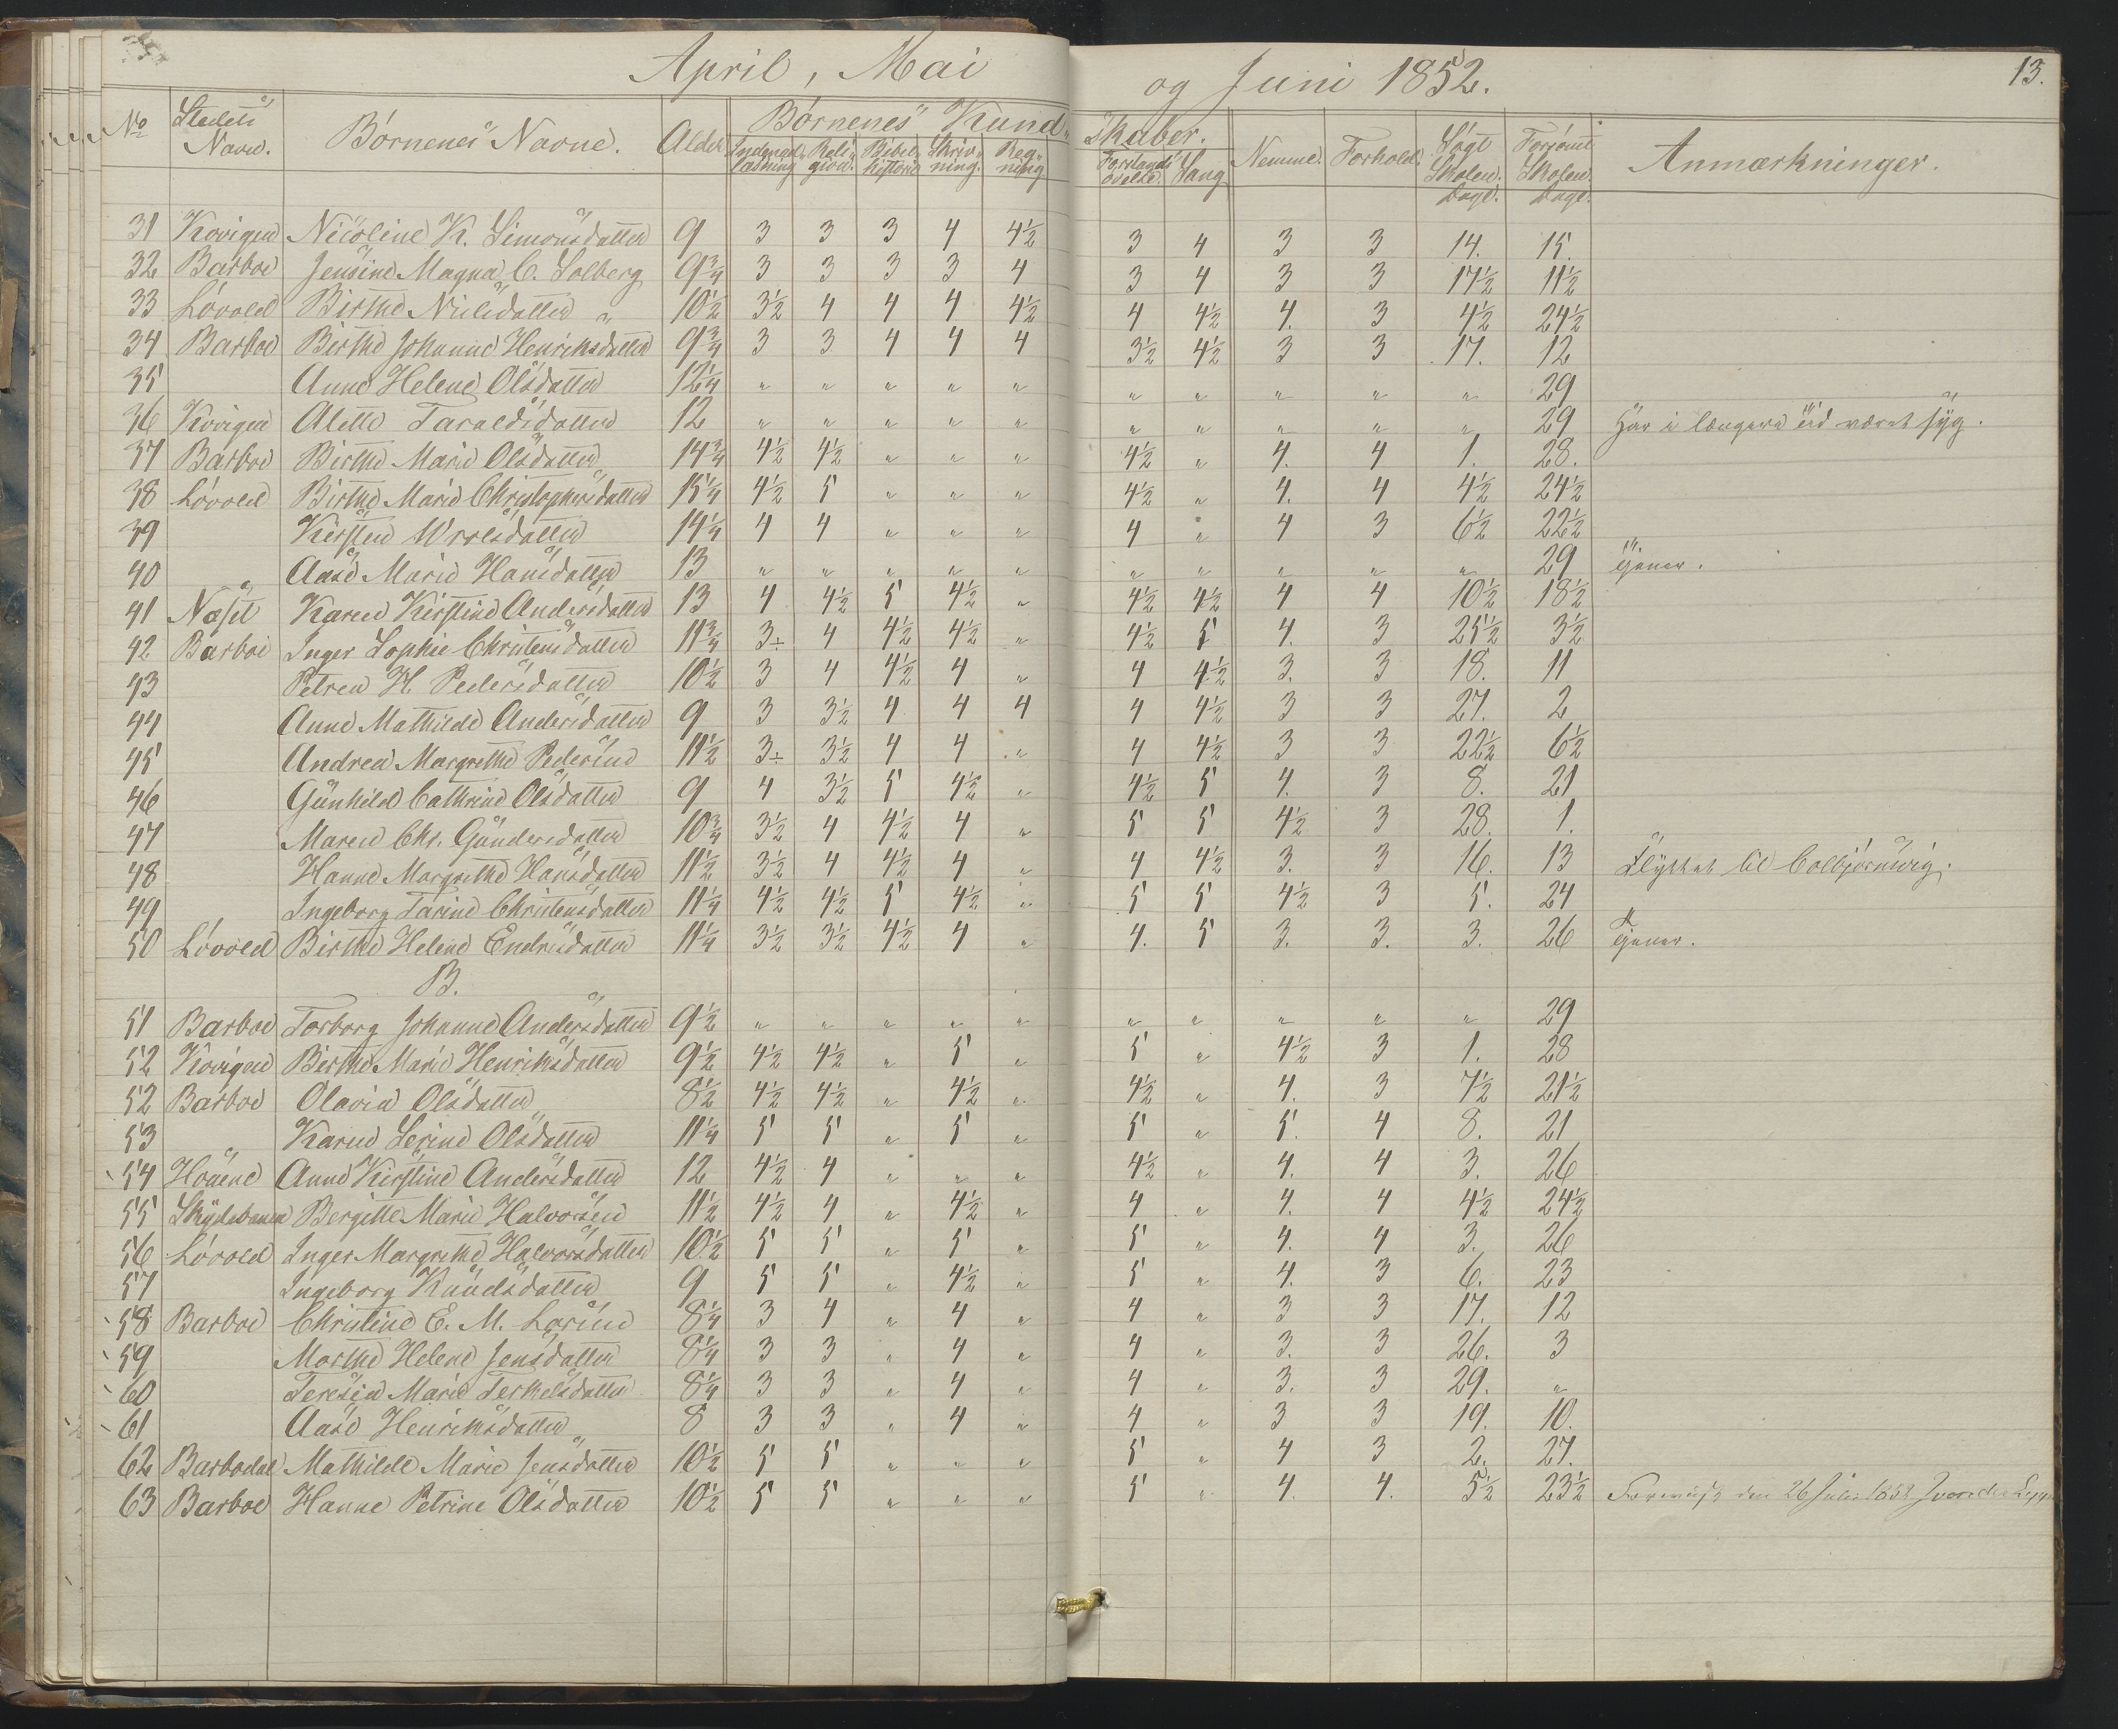 April, Mai og Juni 1852. 13.
No Stedets Navn. Børnenes Navne. Alder. Børnenes Kundskaber. Nemme. Forhold. Søgt Skolen. Dage. Forsømt Skolen. Dage. Anmærkninger.
Indenadlæsning Religion. Bibelhistorie Skrivning. Regning Forstandsøvelse. Sang
31 Kovigen Nicoline K. Simonsdatter 9 3 3 3 4 4½ 3 4 3 3 14. 15.
32 Barboe Jensine Magna C. Solberg 9¾ 3 3 3 3 4 3 4 3 3 17½ 11½
33 Løvold Birthe Nielsdatter " 10½ 3½ 4 4 4 4½ 4 4½ 4. 3 4½ 24½
34 Barboe Birthe Johanne Henriksdatter 9¾ 3 3 4 4 4 3½ 4½ 3 3 17. 12
35 Anne Helene Olsdatter 12¼ " " " " " " " " " " 29
36 Kovigen Alette Taraldsdatter 12 " " " " " " " " " " 29 Har i længere tid været syg.
37 Barboe Birthe Marie Olsdatter 14¾ 4½ 4½ " " " 4½ " 4. 4 1. 28.
38 Løvold Birthe Marie Christophersdatter 15¼ 4½ 5 " " " 4½ " 4. 4 4½ 24½
39 Kirsten datter 14¼ 4 4 " " " 4 " 4 3 6½ 22½
40 Aase Marie Hansdatter 13 " " " " " " " " " " 29 tjener.
41 Næset Karen Kirstine Andersdatter 13 4 4½ 5 4½ " 4½ 4½ 4 4 10½ 18½
42 Barboe Inger Sophie Christensdatter 11¾ 3÷ 4 4½ 4½ " 4½ 5 4. 3 25½ 3½
43 Petrea H. Pedersdatter 10½ 3 4 4½ 4 " 4 4½ 3. 3 18. 11
44 Anne Mathilde Andersdatter 9 3 3½ 4 4 4 4 4½ 3 3 27. 2
45 Andrea Margrethe Pedersen 11½ 3÷ 3½ 4 4 " 4 4½ 3 3 22½ 6½
46 Gunhild Cathrine Olsdatter 9 4 3½ 5 4½ " 4½ 5 4. 3 8. 21
47 Maren Chr. Gundersdatter 10¾ 3½ 4 4½ 4 " 5 5 4½ 3 28. 1.
48 Hanne Margrethe Hansdatter 11½ 3½ 4 4½ 4 " 4 4½ 3. 3 16. 13 Flyttet til Colbjørnsvig.
49 Ingeborg Tarine Christensdatter 11¼ 4½ 4½ 5 4½ " 5 5 4½ 3 5. 24
50 Løvold Birthe Helene Endresdatter 11¼ 3½ 3½ 4½ 4 " 4. 5 3. 3. 3. 26 tjener.
B.
51 Barboe Torborg Johanne Andersdatter 9½ " " " " " " " " " " 29
52 Kovigen Birthe Marie Henriksdatter 9½ 4½ 4½ " 5 " 5 " 4½ 3 1. 28
52 Barboe Olavia Olsdatter 8½ 4½ 4½ " 4½ " 4½ " 4. 3 7½ 21½
53 Karen Serine Olsdatter 11¼ 5 5 " 5 " 5 " 5. 4 8. 21
54 Houene Anne Kirstine Andersdatter 12 4½ 4 " " " 4½ " 4. 4 3. 26
55 Skydebanen Bergitte Marie Halvorsen 11½ 4½ 4 " 4½ " 4 " 4. 4 4½ 24½
56 Løvold Inger Margrethe Halvorsdatter 10½ 5 5 " 5 " 5 " 4. 4 3. 26
57 Ingeborg Knudsdatter 9 5 5 " 4½ " 5 " 4. 3 6. 23
58 Barboe Christine E. M. 8¼ 3 4 " 4 " 4 " 3 3 17. 12
59 Marthe Helene Jensdatter 8¼ 3 3 " 4 " 4 " 3. 3 26. 3
60 Teresia Marie Terkelsdatter 8¼ 3 3 " 4 " 4 " 3. 3 29. "
61 Aase Henriksdatter 8 3 3 " 4 " 4 " 3 3 19. 10.
62 Barbodal Mathilde Marie Jensdatter 10½ 5 5 " " " 5 " 4 3 2. 27.
63 Barboe Hanne Petrine Olsdatter 10½ 5 5 " " " 5 " 4. 4. 5½ 23½ den 26 Juli 1852